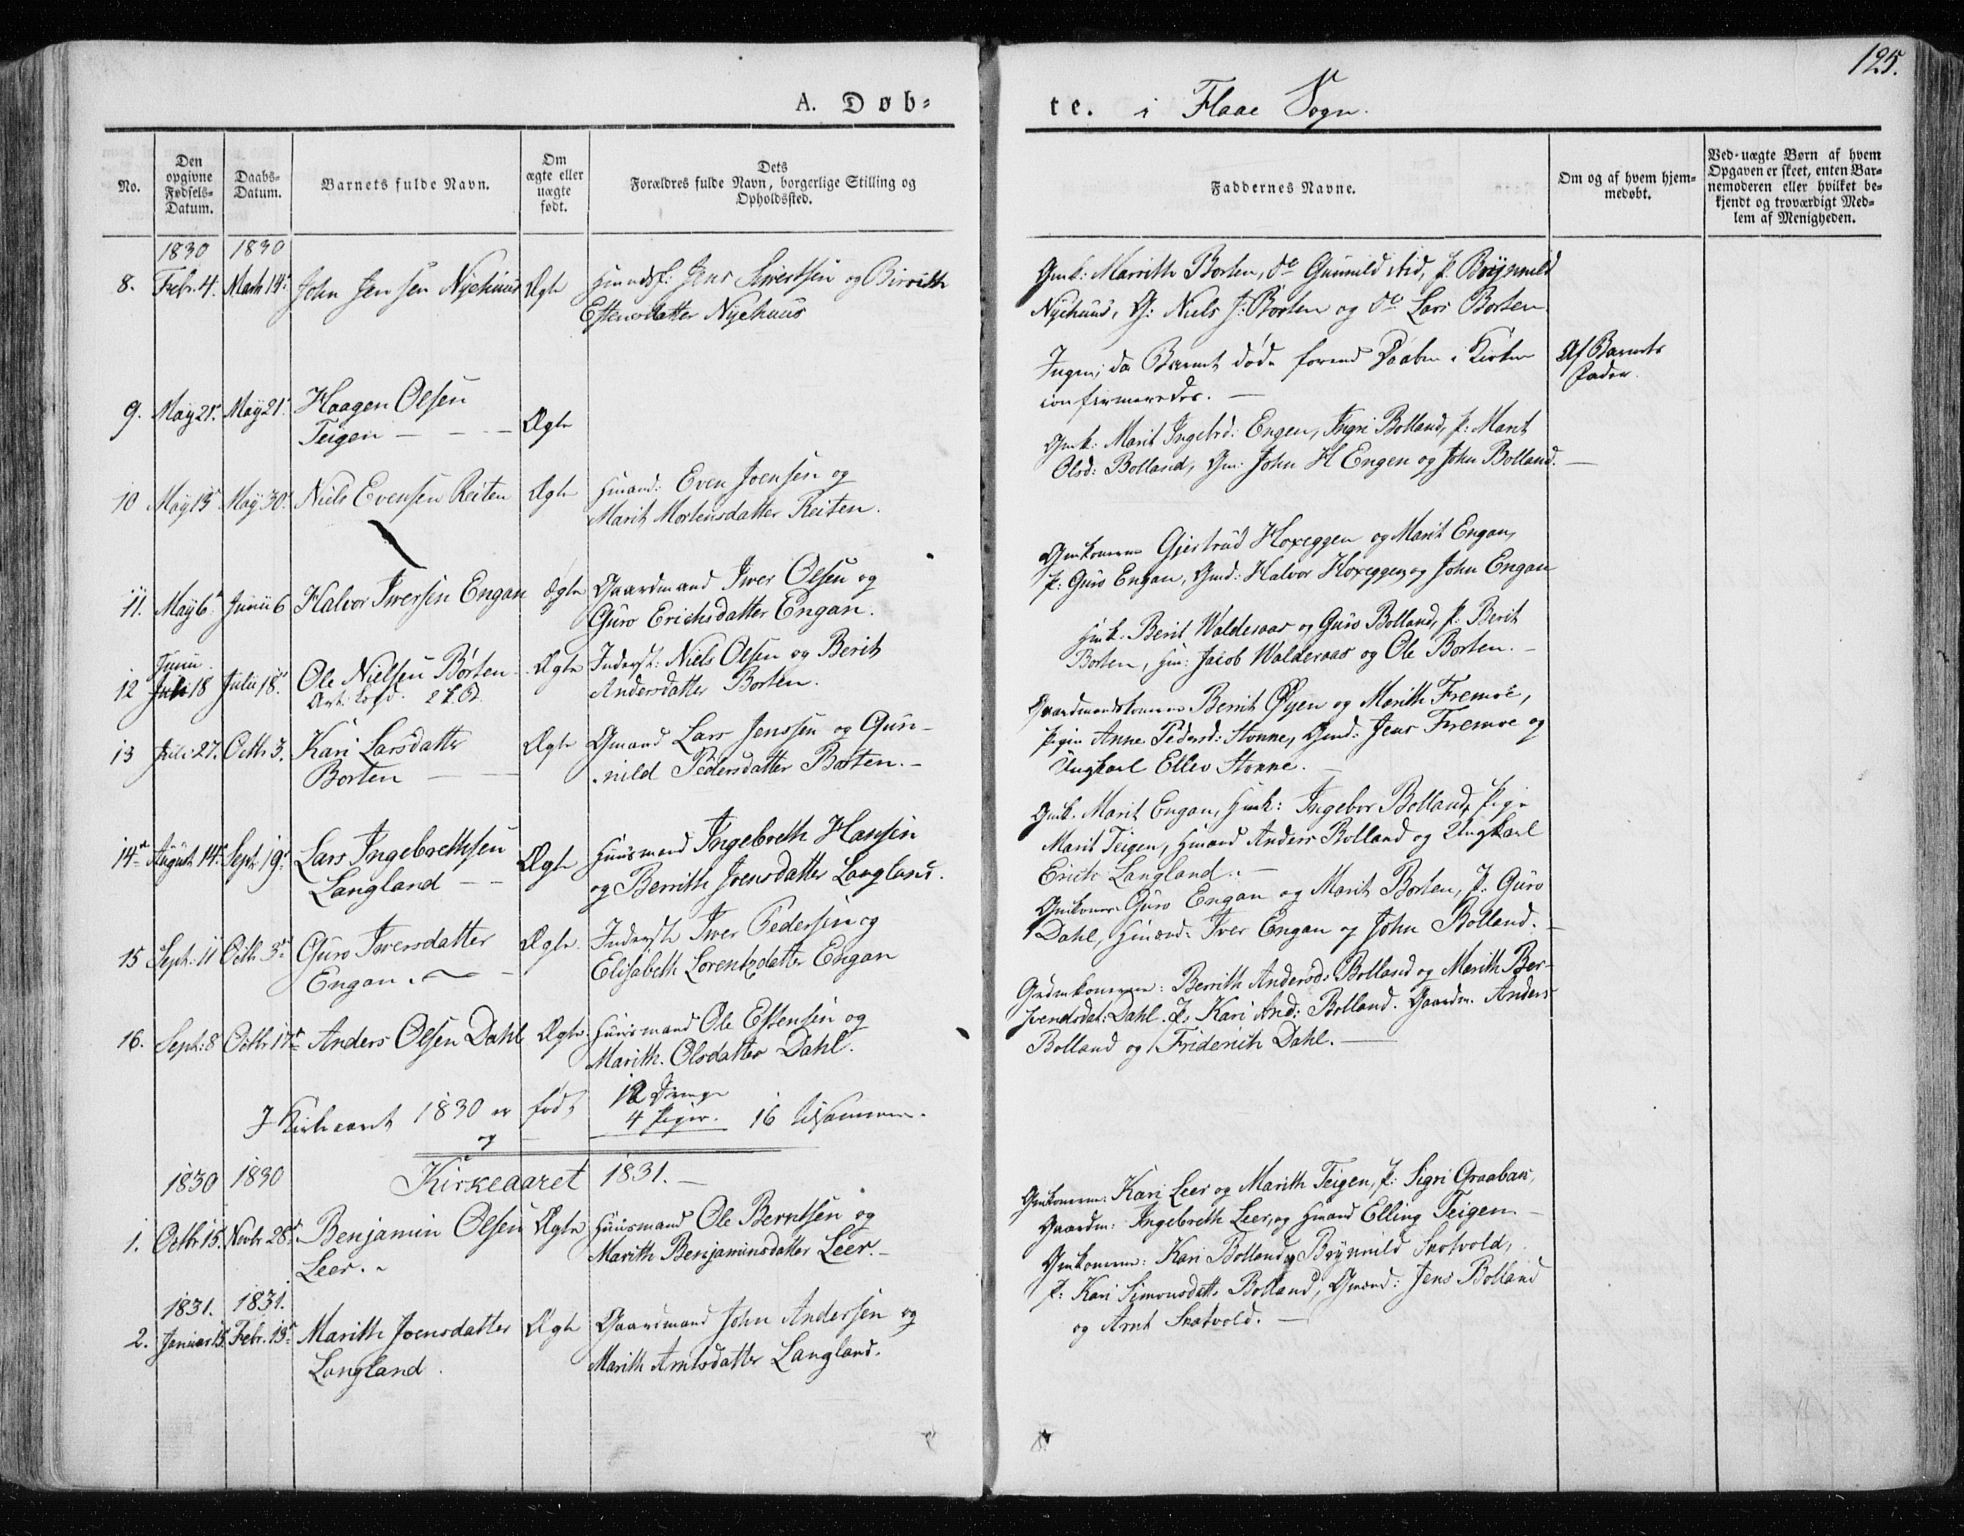 125.
A. Døb=
te. i Flaae Sogn.
No.
Den opgivne Fødsels-Datum.
Daabs-Datum.
Barnets fulde Navn.
Om ægte eller uægte født.
Dets Forældres fulde Navn, borgerlige Stilling og Opholdssted.
Faddernes Navne.
Om og af hvem hjemmedøbt.
Ved uægte Børn af hvem Opgaven er skeet, enten Barnemoderen eller hvilket bekjendt og troværdigt Medlem af Menigheden.
1830 1830
8. Febr. 4. Marts 14. John Jensen Nyehuus Ægte Huusmd: Jens Sivertsen og Birrith
Estensdatter Nyehuus
Gmk: Marrith Borten, do Gunnild ibid, P. Brynnild
Nyehuus, G: Niels J: Borten og do Lars Borten
9. May 21. May 21. Haagen Olsen
Teigen Ægte
Ingen, da Barnet døde forend Daaben i Kirken
confirmeredes.
Af Barnets
Fader.
10 May 15 May 30. Niels Evensen Reiten Ægte Hmand: Even Joensen og
Marit Mortensdatter Reiten.
Gmk: Marit Ingebrd: Engen, Ingri Bolland, P: Marit
Olsd: Bolland, Gm: John H Engen og John Bolland.
11. May 6. Junii 6 Halvor Iversen Engan ægte Gaardmand Iver Olsen og
Guro Erichsdatter Engan.
Gmkonerne Gjertrud Hoxeggen og Marit Engan,
P: Guro Engan, Gmd: Halvor Hoxeggen og John Engan
Junii
12 Juli 18 Julii 18. Ole Nielsen Borten Ægte Inderst: Niels Olsen og Berit
Andersdatter Borten.
Hmk. Berit Walderaas og Guro Bolland, P: Berit
Borten, Hm: Jacob Walderaas og Ole Borten.
13 Juli 27. Octbr 3. Kari Larsdatter
Borten Ægte Gmand Lars Jenssen og Gun-
nild Pedersdatter Borten.
Gaardmandskonerne Berrit Øyen og Marith Fremoe,
Pigen Anne Pedersd: Stonne, Gmd: Jens Fremoe og
Ungkarl Ellev Stonne.
14. August 14. Sept. 19. Lars Ingebrethsen
Langland Ægte Huusmand Ingebreth Hansen
og Berrith Joensdatter Langland.
Gmk. Marit Engan, Hmk: Ingebor Bolland, Pige
Marit Teigen, Hmand Anders Bolland og Ungkarl
Erich Langland.
15 Sept: 11 Octbr 3. Guro Iversdatter
Engan. Ægte. Inderste Iver Pedersen og
Elisabeth Lorentzdatter Engan
Gmkonerne Guro Engan og Marit Borten, P. Guro
Dahl, Hmænd: Iver Engan og John Bolland.
16. Sept: 8 Octbr 17. Anders Olsen Dahl Ægte Huusmand Ole Estensen og
Marith Olsdatter Dahl.
Grdmkonerne: Berrith Andersd: Bolland og Marith Ber-
Svendsdat: Dahl. P: Kari And: Bolland. Gaardm. Anders
Bolland og Friderich Dahl.
I Kirkeaaret 1830 er fød, 12 Drenge
4 Piger. 16 tilsammen.
1830 1830 Kirkeaaret 1831.
1. Octbr 15. Novbr 28. Benjamin Olsen
Leer. Ægte Huusmand Ole Berntsen og
Marith Benjaminsdatter Leer.
Gmkonerne: Kari Leer og Marith Teigen, P: Sigri Graabak,
Gaardm: Ingebreth Leer, og Hmand Elling Teigen.
1831. 1831.
2. Januar 15. Febr. 13. Marith Joensdatter
Langland. Ægte Gaardmand John Andersen og
Marith Arntsdatter Langland.
Gmkonerne: Kari Bolland og Brynnild Skotvold,
P: Kari Simonsdatt. Bolland, Gmænd: Jens Bolland
og Arnt Skotvold.